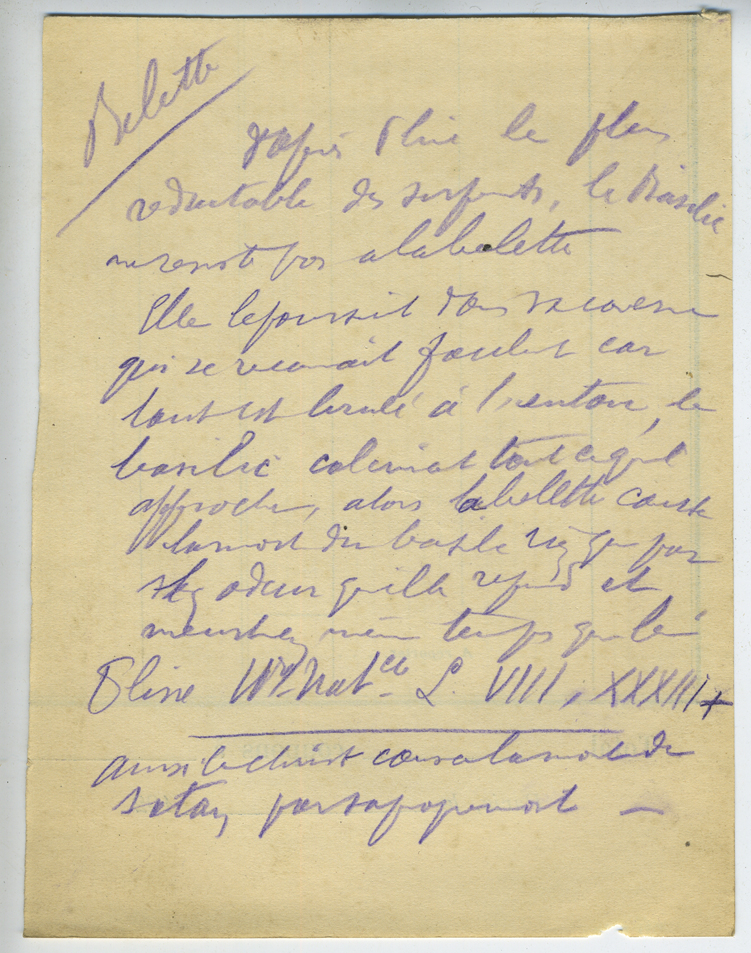 Belette
d'après Pline le plus
redoutable des serpents, le Basilic
ne resiste pas a la belette
Elle le poursuit dans sa caverne
qui se reconnait facilement car
tout est brulé à l'entour, le
basilic calcinant tout ce qu'il
approche, alors la belette cause
la mort du basilic rien que par
odeur qu'elle repend et
meurt en même temps que lui
Pline Hist. Natelle L. VIII, XXXIII
Ainsi le Christ causa la mort de
Satan par sa propre mort —